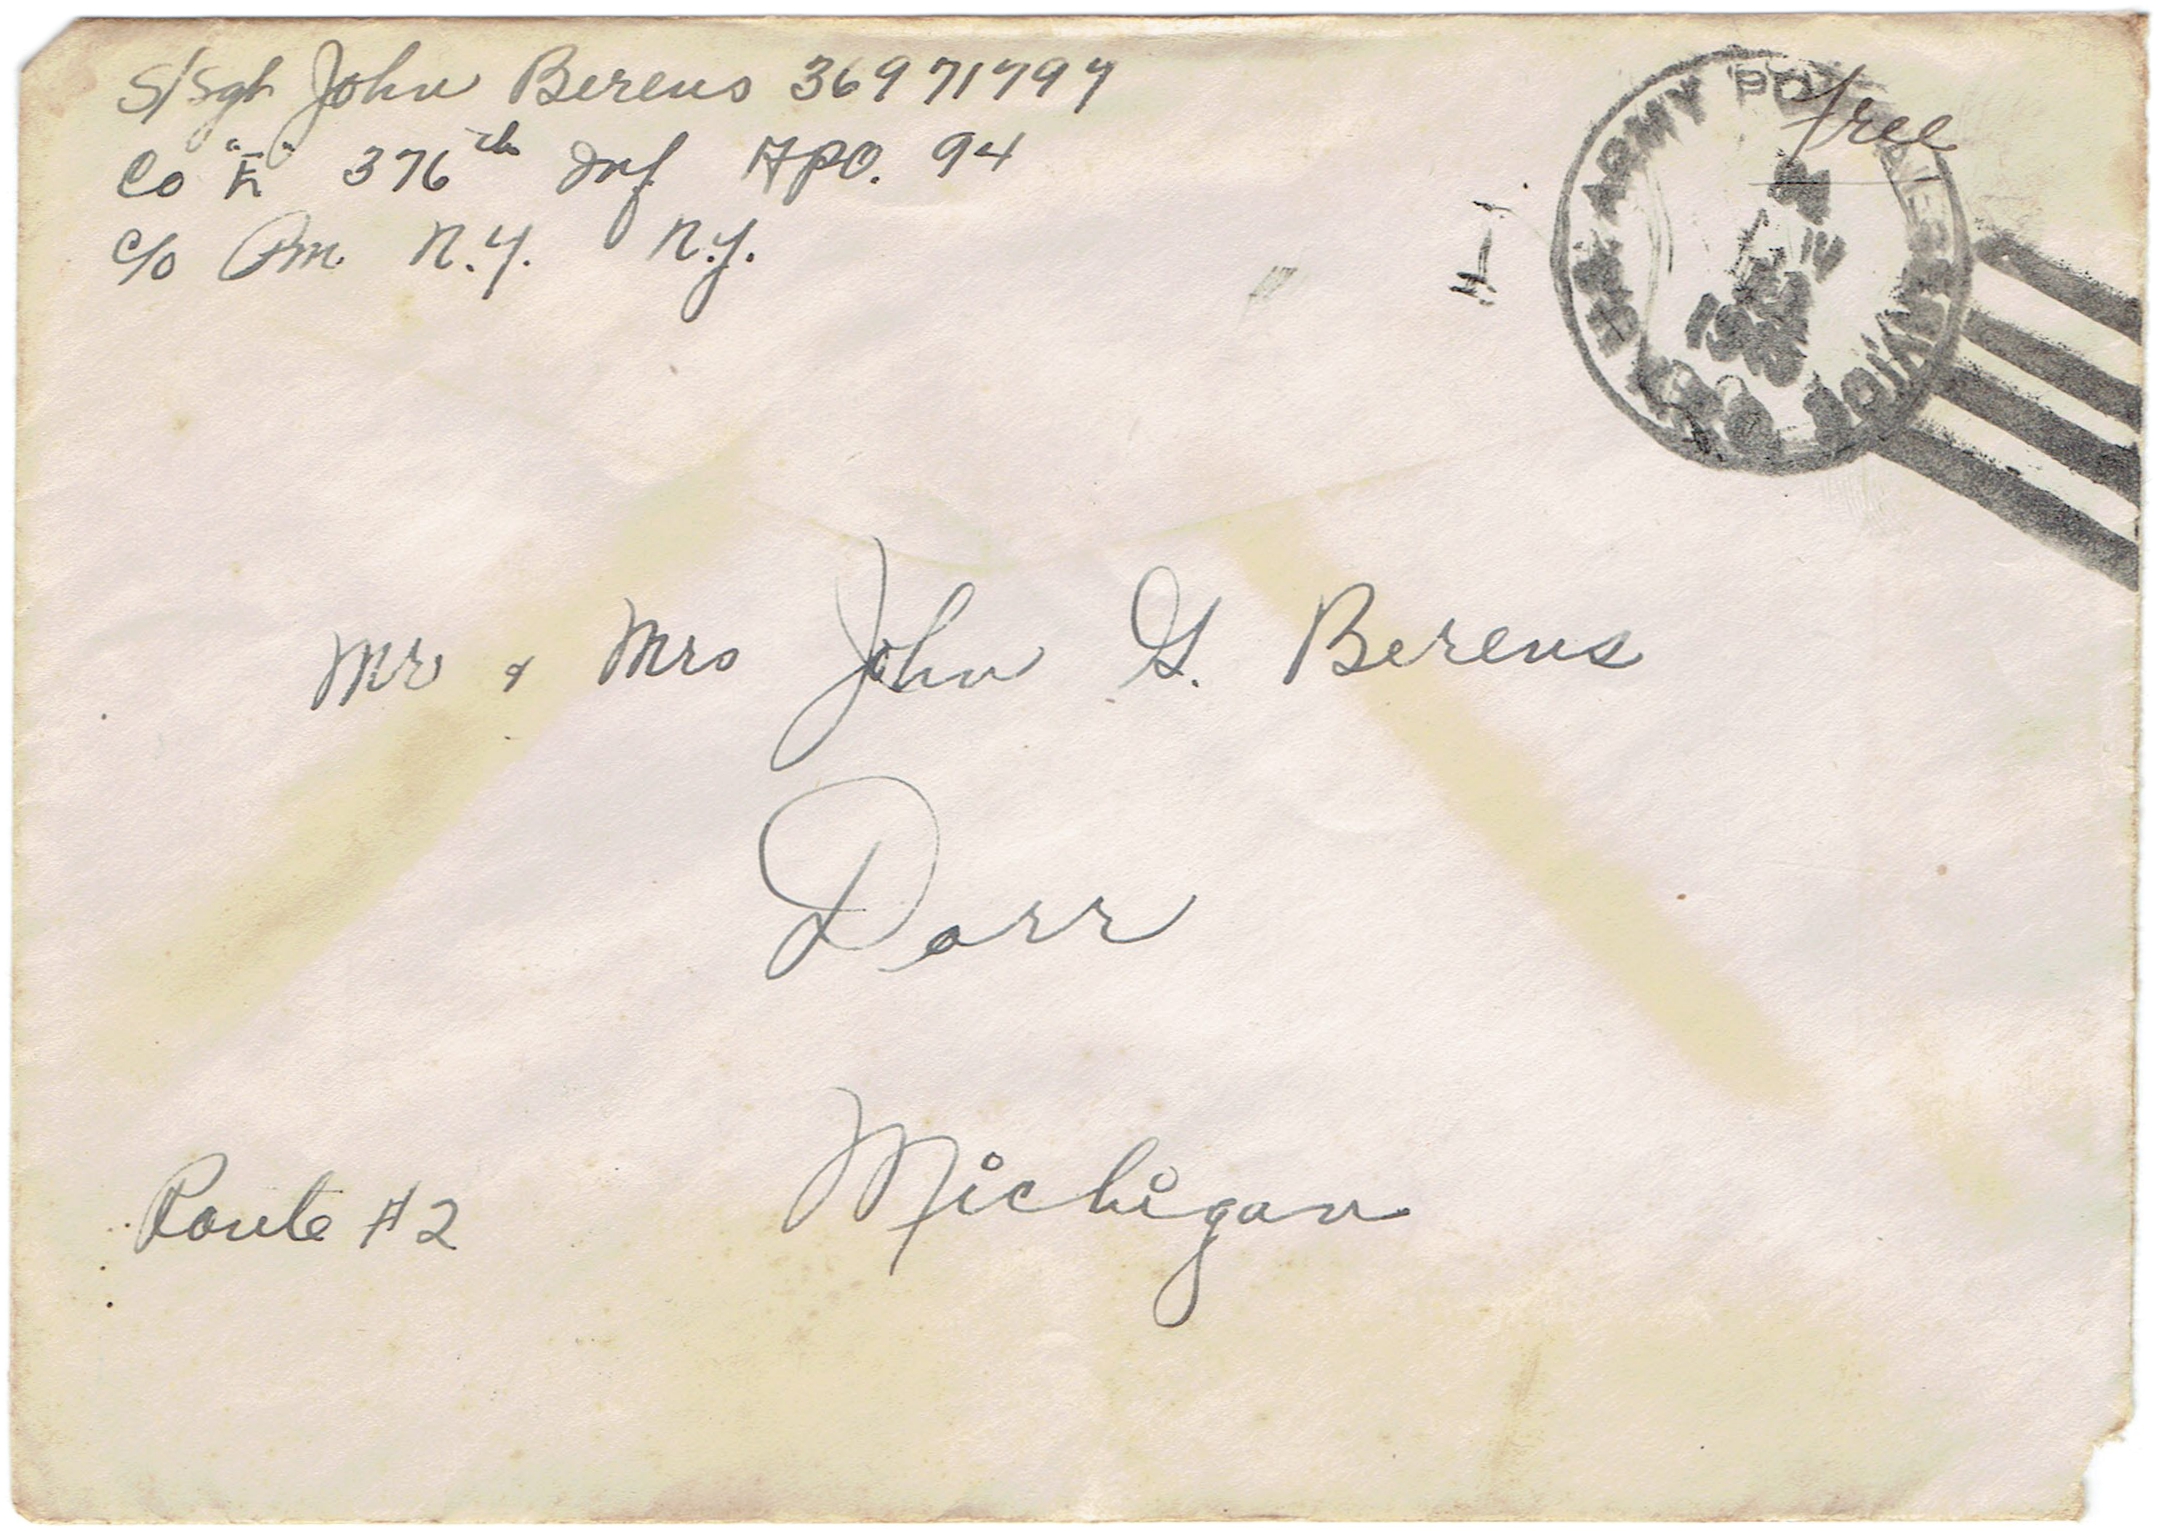 S/Sgt John Berens 36971797
Co "E" 376th Inf APO. 94
c/o Pm N.Y. N.Y.
free
ARMY POSTAL SERVICE
Mr & Mrs John G. Berens
Dorr
Michigan
Route #2